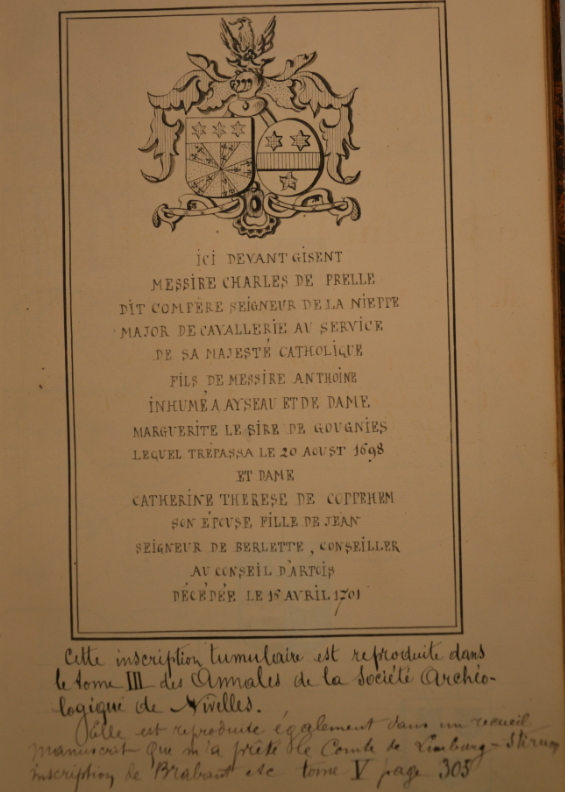 ICI DEVANT GISENT
MESSIRE CHARLES DE PRELLE
DIT COMPÈRE SEIGNEUR DE LA NIEPPE
MAJOR DE CAVALLERIE AU SERVICE
DE SA MAJESTÉ CATHOLIQUE
FILS DE MESSIRE ANTHOINE
INHUMÉ A AYSEAU ET DE DAME
MARGUERITE LE SIRE DE GOUGNIES
LEQUEL TRÉPASSA LE 20 AOUST 1698
ET DAME
CATHERINE THERESE DE COPPEHEM
SON ÉPOUSE, FILLE DE JEAN
SEIGNEUR DE BERLETTE, CONSEILLER
AU CONSEIL D'ARTOIS
DÉCÉDÉE LE 15 AVRIL 1701
Cette inscription tumulaire est reproduite dans
le tome III des Annales de la Société Archéo-
logique de Nivelles.
Elle est reproduite également dans un recueil
manuscrit que m'a prêté le Comte de Limburg-Stirum
inscription de Brabant etc tome V page 305